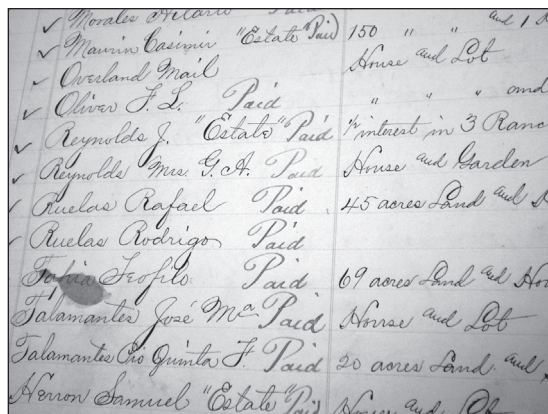 ✓ Morales Hilario Paid and 1
✓ Maurin Casimir "Estate" Paid 150 " "
✓ Overland Mail House and Lot
✓ Oliver F. L. Paid " " " and
✓ Reynolds J. "Estate" Paid ½ interest in 3 Ranc
✓ Reynolds Mrs. G. A. Paid House and Garden
✓ Ruelas Rafael Paid 45 acres Land and
✓ Ruelas Rodrigo Paid
Tafia Teofilo Paid 69 acres Land and Hou
Talamantes José Ma Paid House and Lot
Talamantes Pio Quinta F. Paid 20 acres Land and
Herron Samuel "Estate" Paid House and